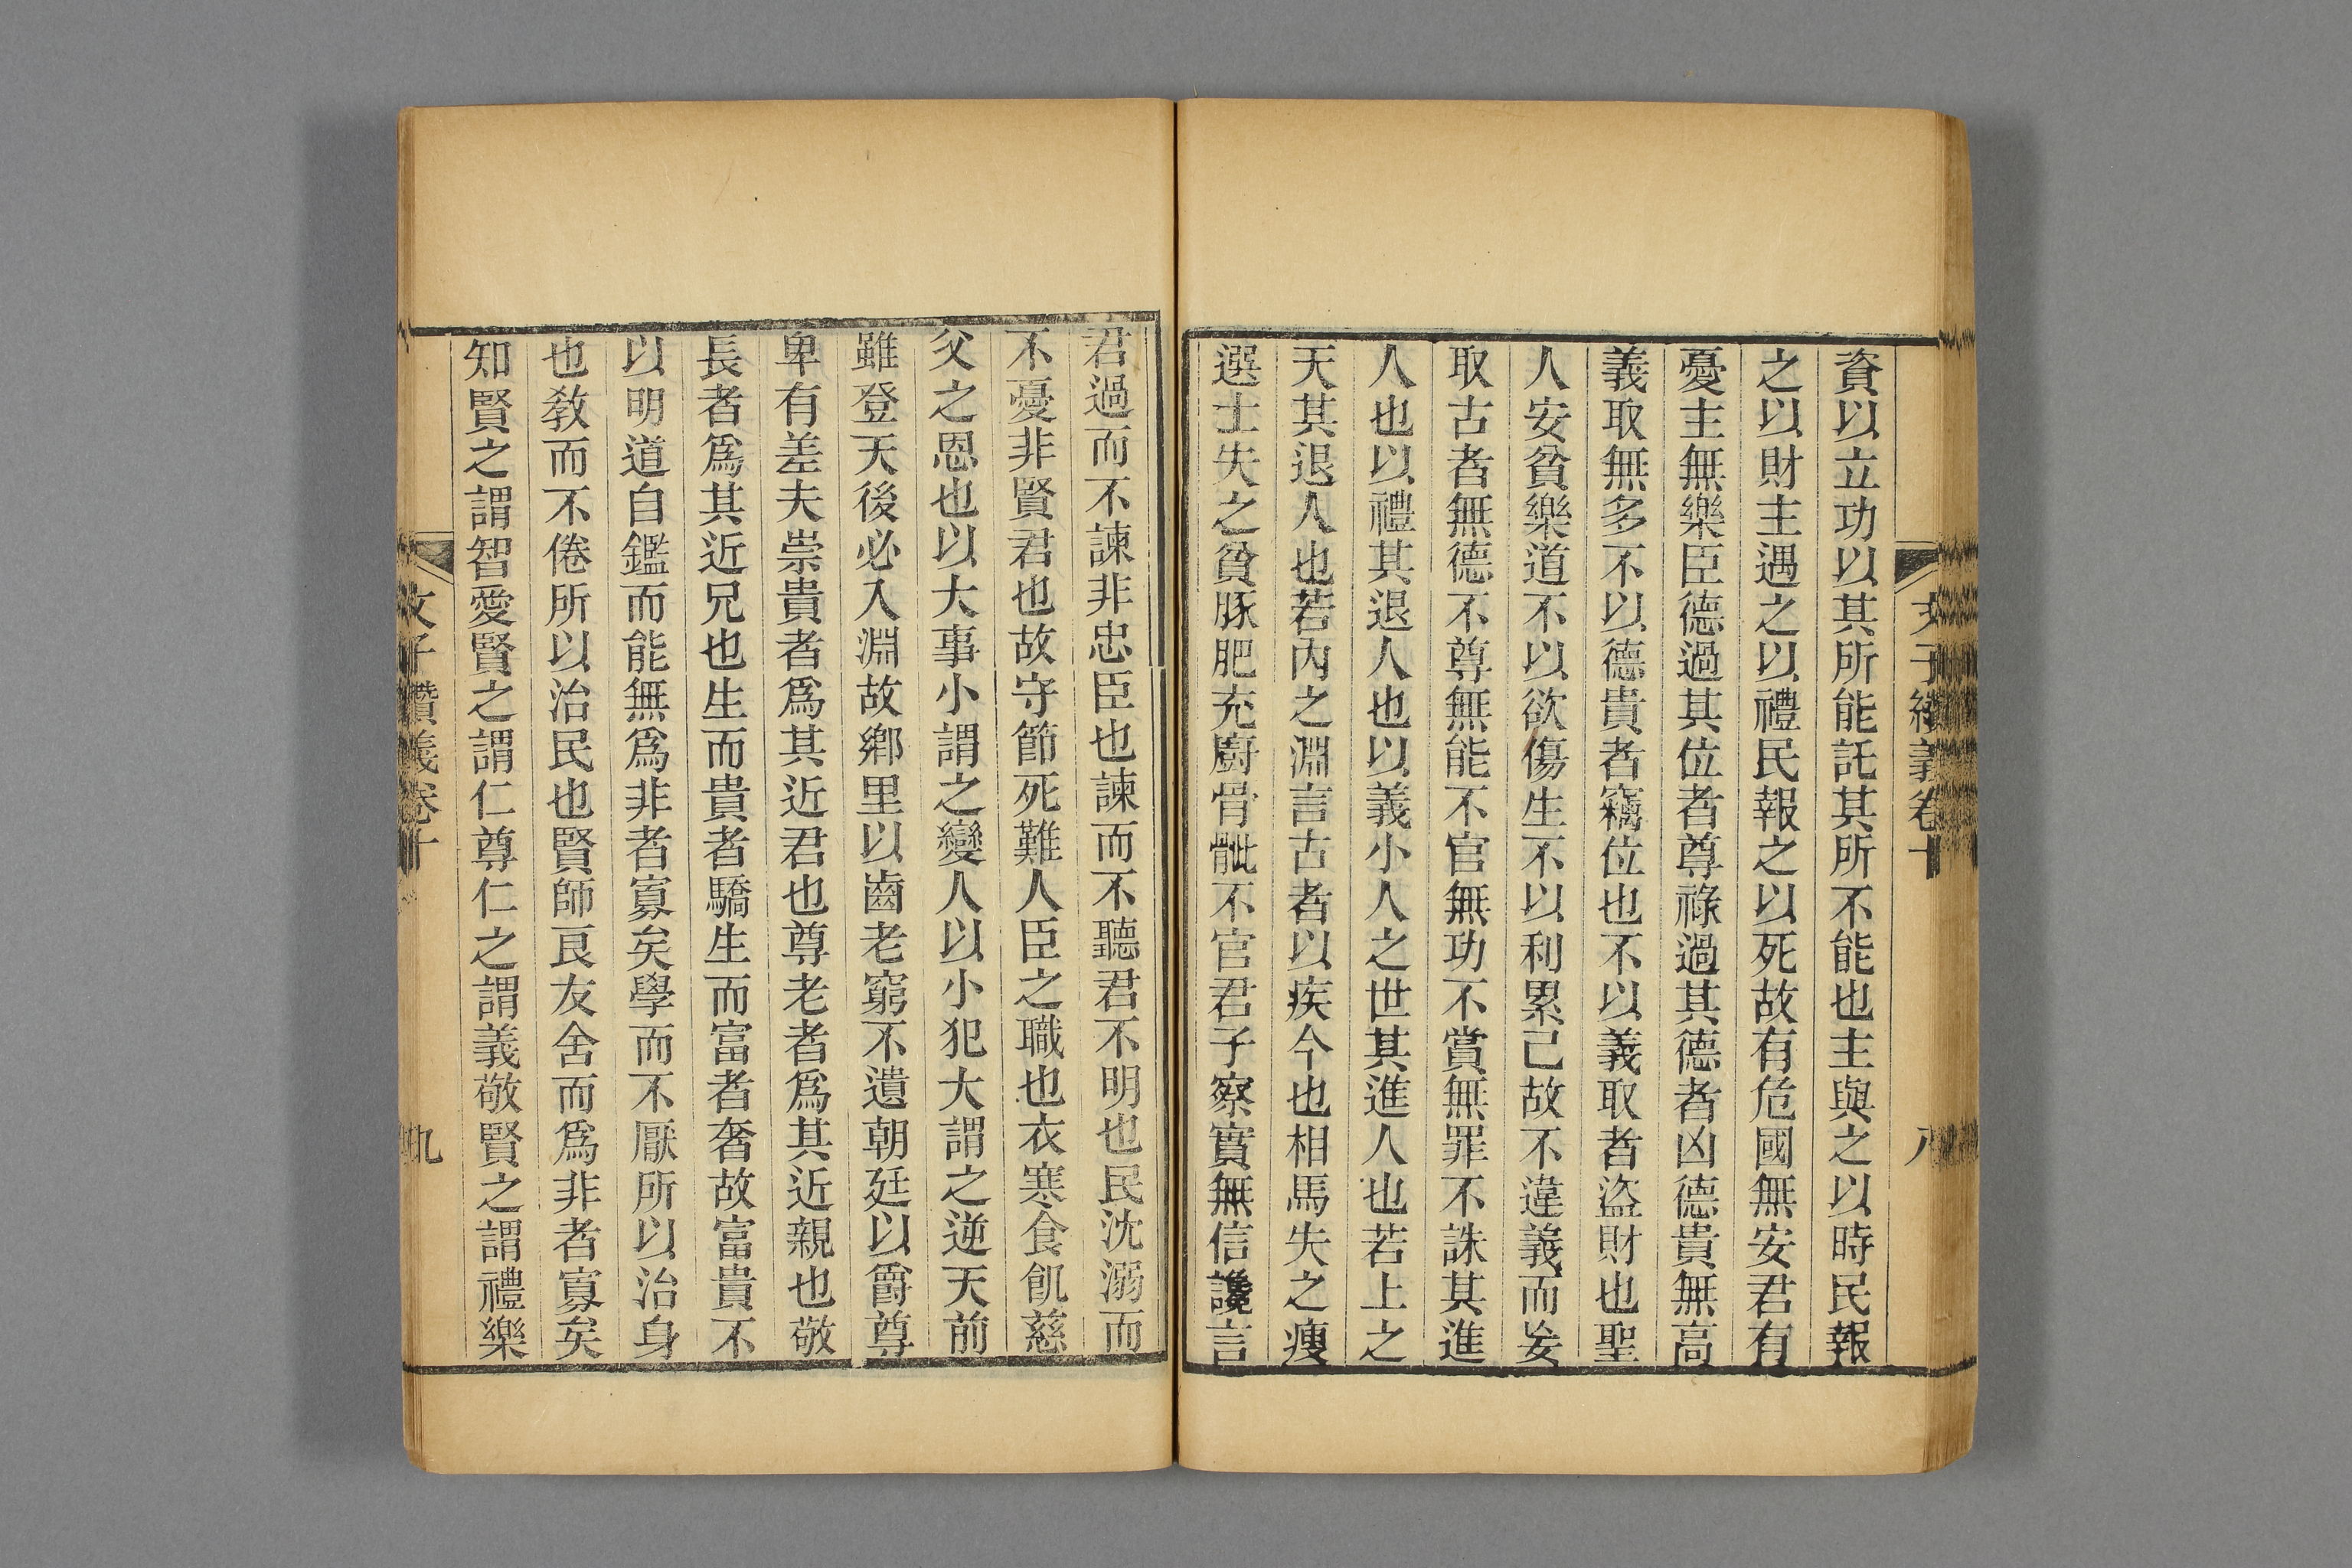 文子纘義卷十
八
資以立功以其所能託其所不能也主與之以時民報
之以財主遇之以禮民報之以死故有危國無安君有
憂主無樂臣德過其位者尊祿過其德者凶德貴無高
義取無多不以德貴者竊位也不以義取者盜財也聖
人安貧樂道不以欲傷生不以利累己故不違義而妄
取古者無德不尊無能不官無功不賞無罪不誅其進
人也以禮其退人也以義小人之世其進人也若上之
天其退人也若內之淵言古者以疾今也相馬失之瘦
選士失之貧豚肥充廚骨骴不官君子察實無信讒言
君過而不諫非忠臣也諫而不聽君不明也民沈溺而
不憂非賢君也故守節死難人臣之職也衣寒食飢慈
父之恩也以大事小謂之變人以小犯大謂之逆天前
雖登天後必入淵故鄉里以齒老窮不遺朝廷以爵尊
卑有差夫崇貴者爲其近君也尊老者爲其近親也敬
長者爲其近兄也生而貴者驕生而富者奢故富貴不
以明道自鑑而能無爲非者寡矣學而不厭所以治身
也教而不倦所以治民也賢師良友舍而爲非者寡矣
知賢之謂智愛賢之謂仁尊仁之謂義敬賢之謂禮樂
文子纘義卷十
九